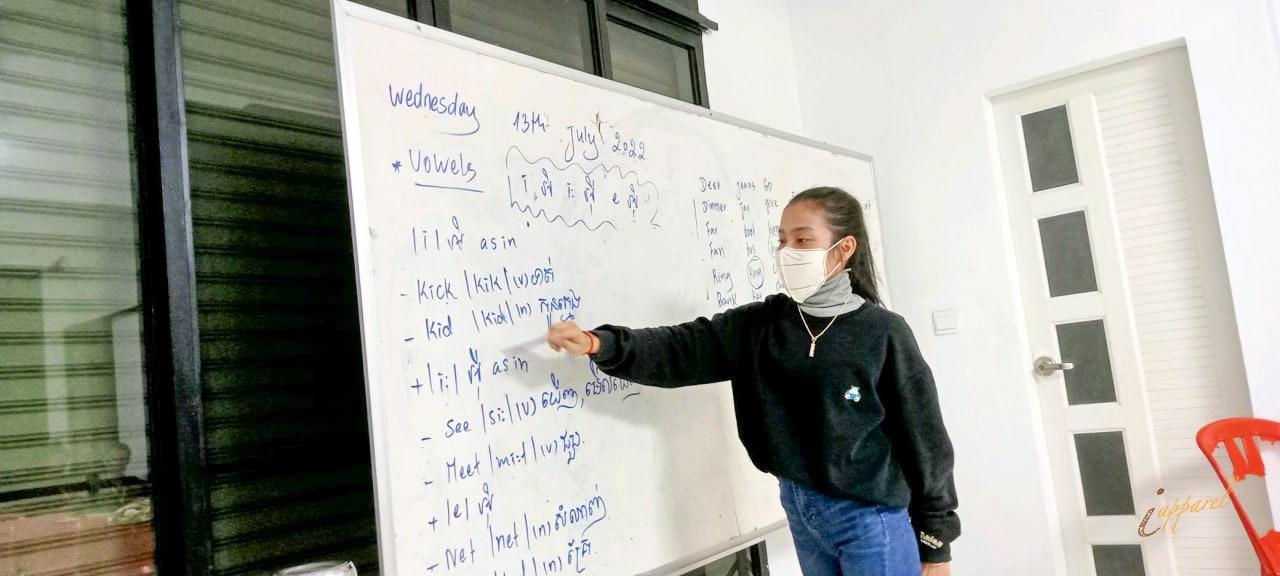 Wednesday
13th July 2022
* Vowels
|i| as in
- Kick |kik| (v) ទាត់
- Kid |kid| (n) កូនក្មេង
+ |i:| អ៊ី as in
- See |si:| (v) ឃើញ, មើលឃើញ
- Meet |mi:t| (v) ជួប
+ |e|
- Net |net| (n) សំណាញ់
Deer Jeans Go
Dinner Jar give
Far boot
Fan bus
Ring King
Bank
iapparel